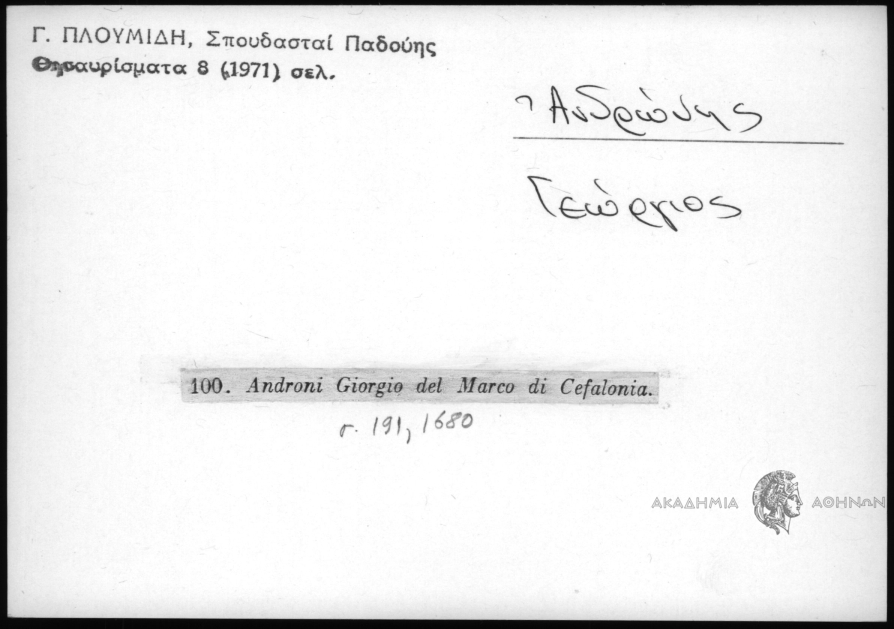 Γ. ΠΛΟΥΜΙΔΗ, Σπουδασταί Παδούης
Θησαυρίσματα 8 (1971) σελ.
Ἀνδρώνης
Γεώργιος
100. Androni Giorgio del Marco di Cefalonia.
σ. 191, 1680
ΑΚΑΔΗΜΙΑ ΑΘΗΝΩΝ